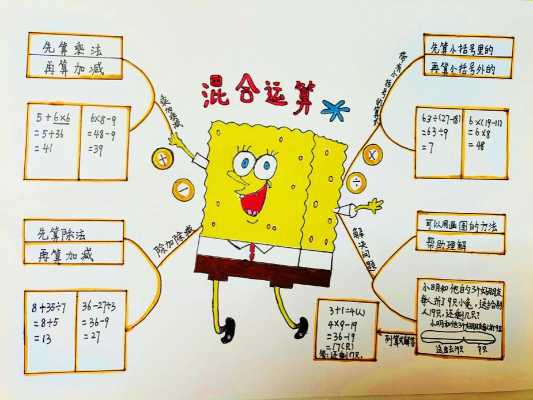 混合运算
先算乘法
再算加减
5+6×6
=5+36
=41
6×8-9
=48-9
=39
先算小括号里的
再算小括号外的
63÷(27-18)
=63÷9
=7
6×(19-11)
=6×8
=48
先算除法
再算加减
除加除减
8+35÷7
=8+5
=13
36-27÷3
=36-9
=27
解决问题
可以用画图的方法
帮助理解
小明和他的3个好朋友
每人折了9只小兔,送给别
人19只,还剩几只?
列算式解答
3+1=4(人)
4×9-19
=36-19
=17(只)
答:还剩17只。
+
-
×
÷